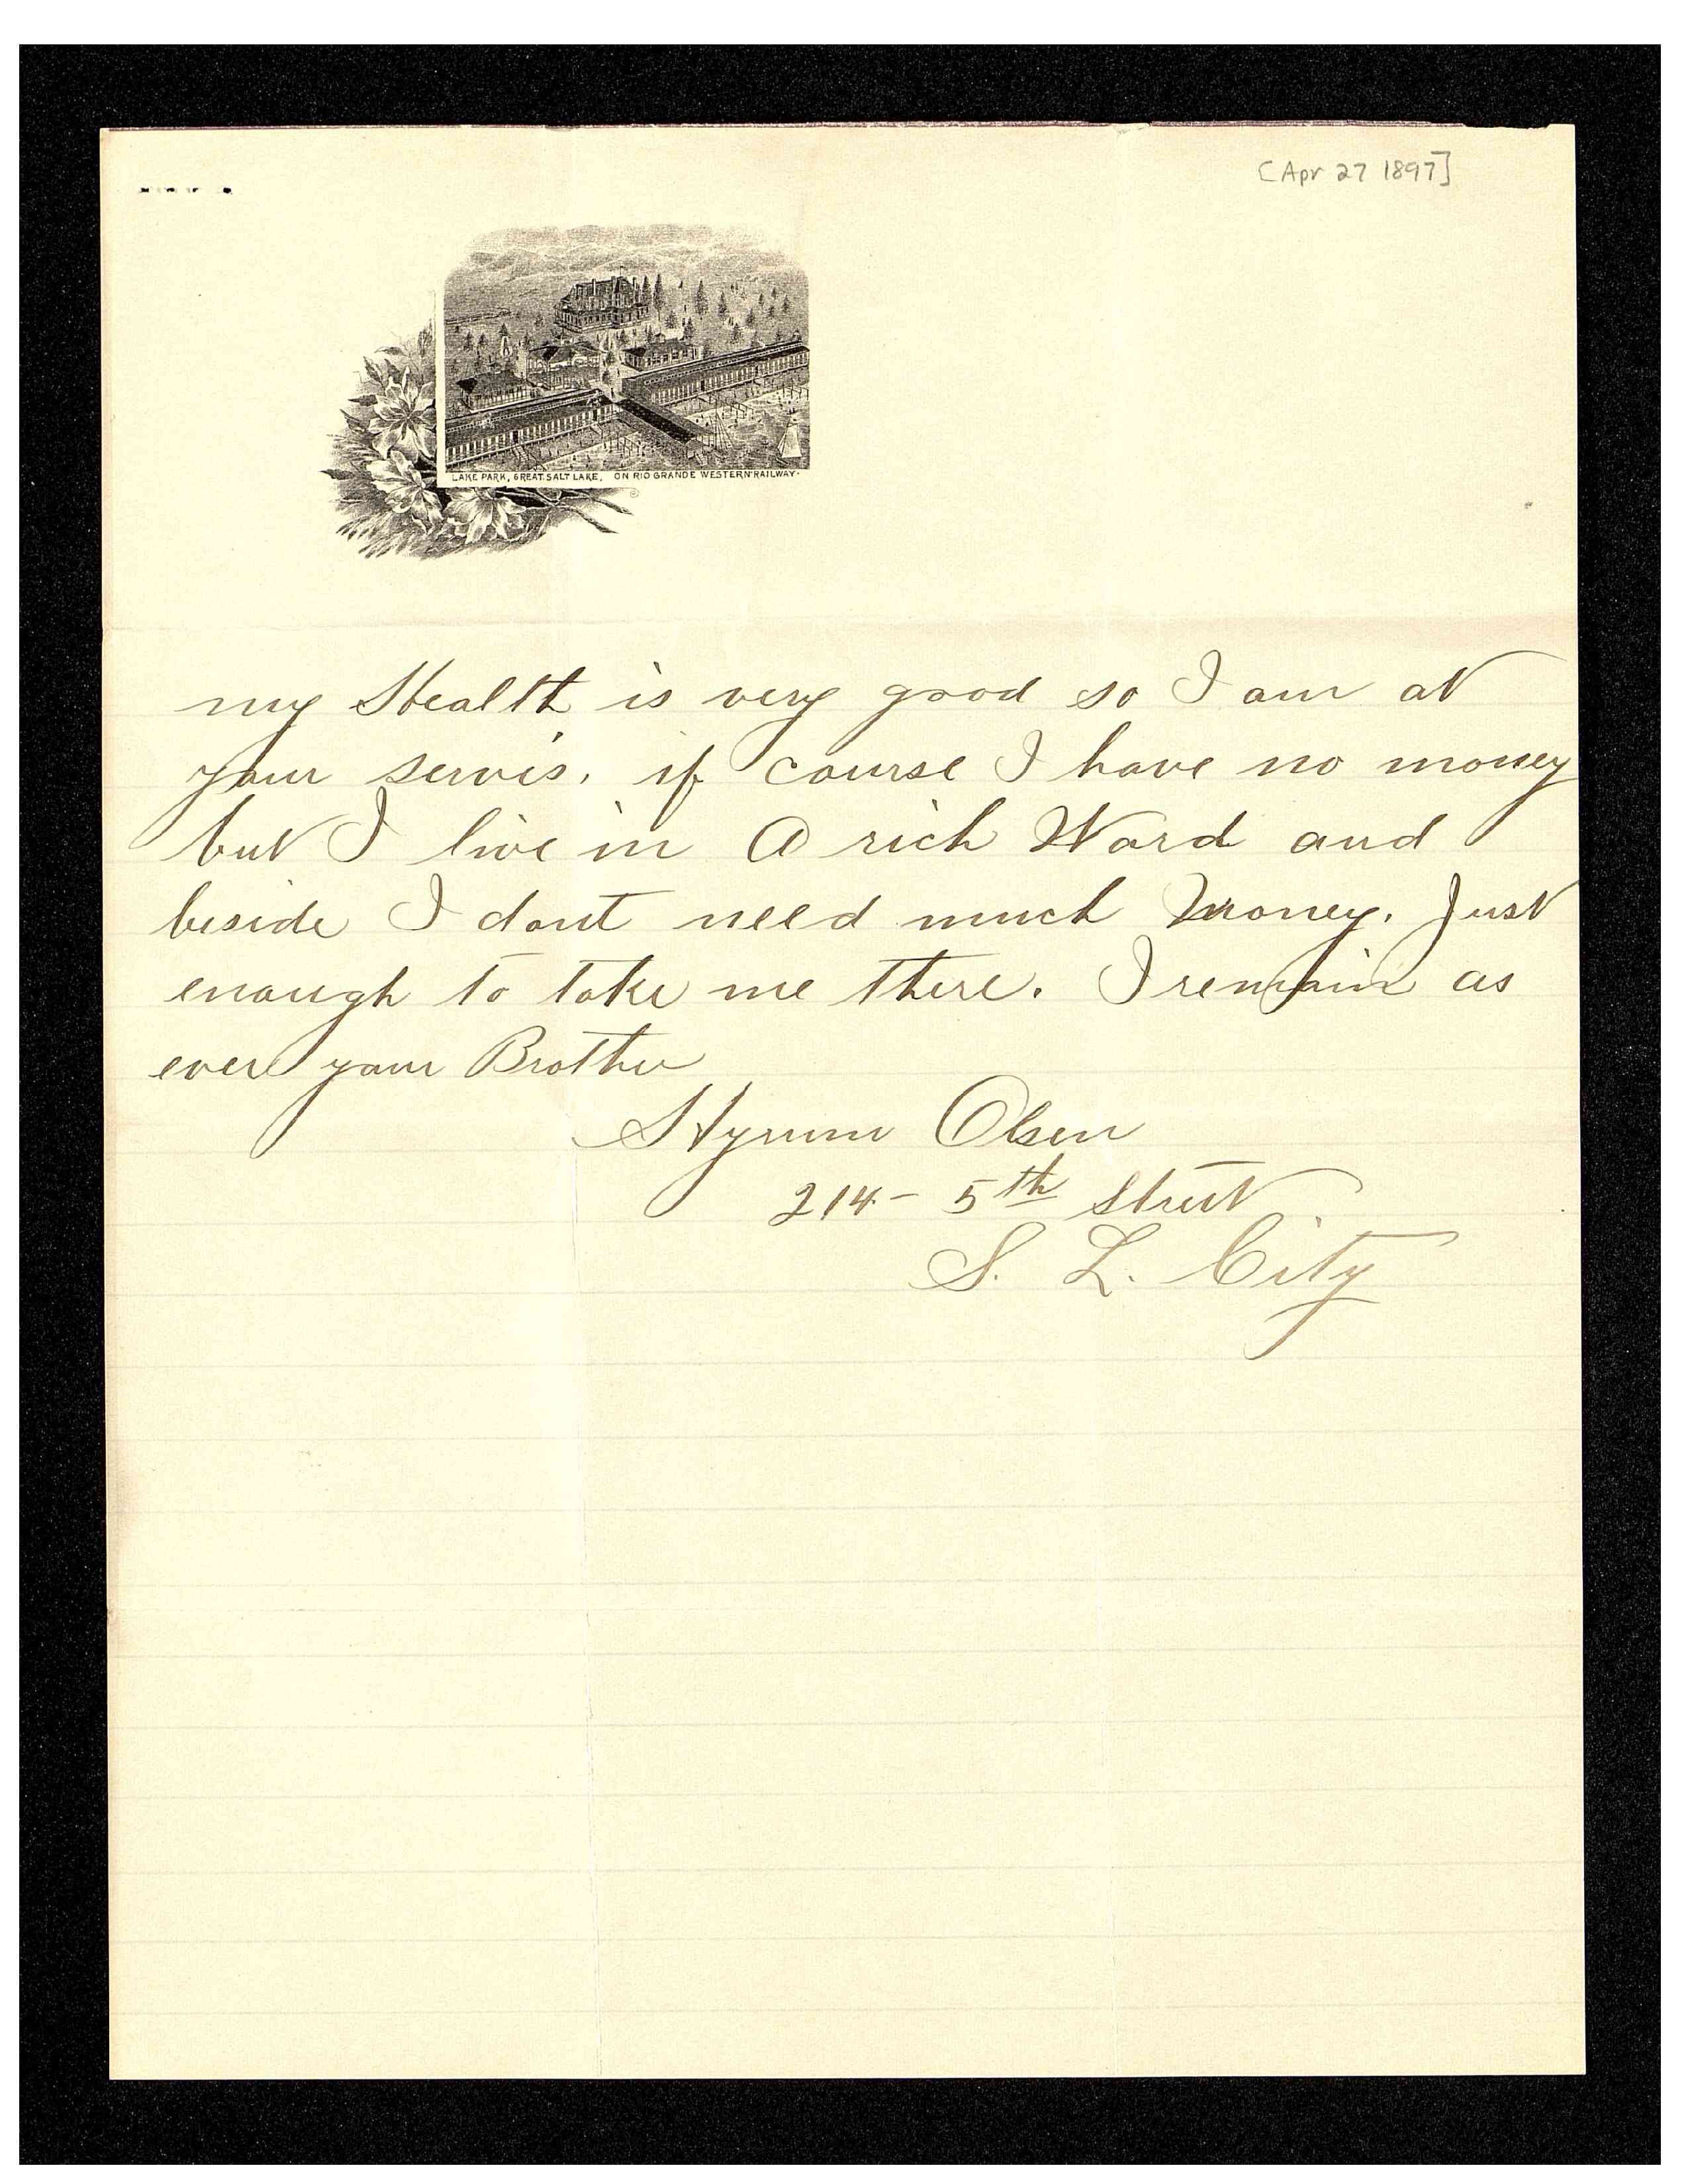 [Apr 27 1897]
LAKE PARK, GREAT SALT LAKE, ON RIO GRANDE WESTERN RAILWAY.
my Health is very good so I am at
your servis. if course I have no money
but I live in A rich Ward and
beside I dont need much Money. Just
enough to take me there. I remain as
ever your Brother
Hyrum Olsen
214 - 5th Street
S. L. City